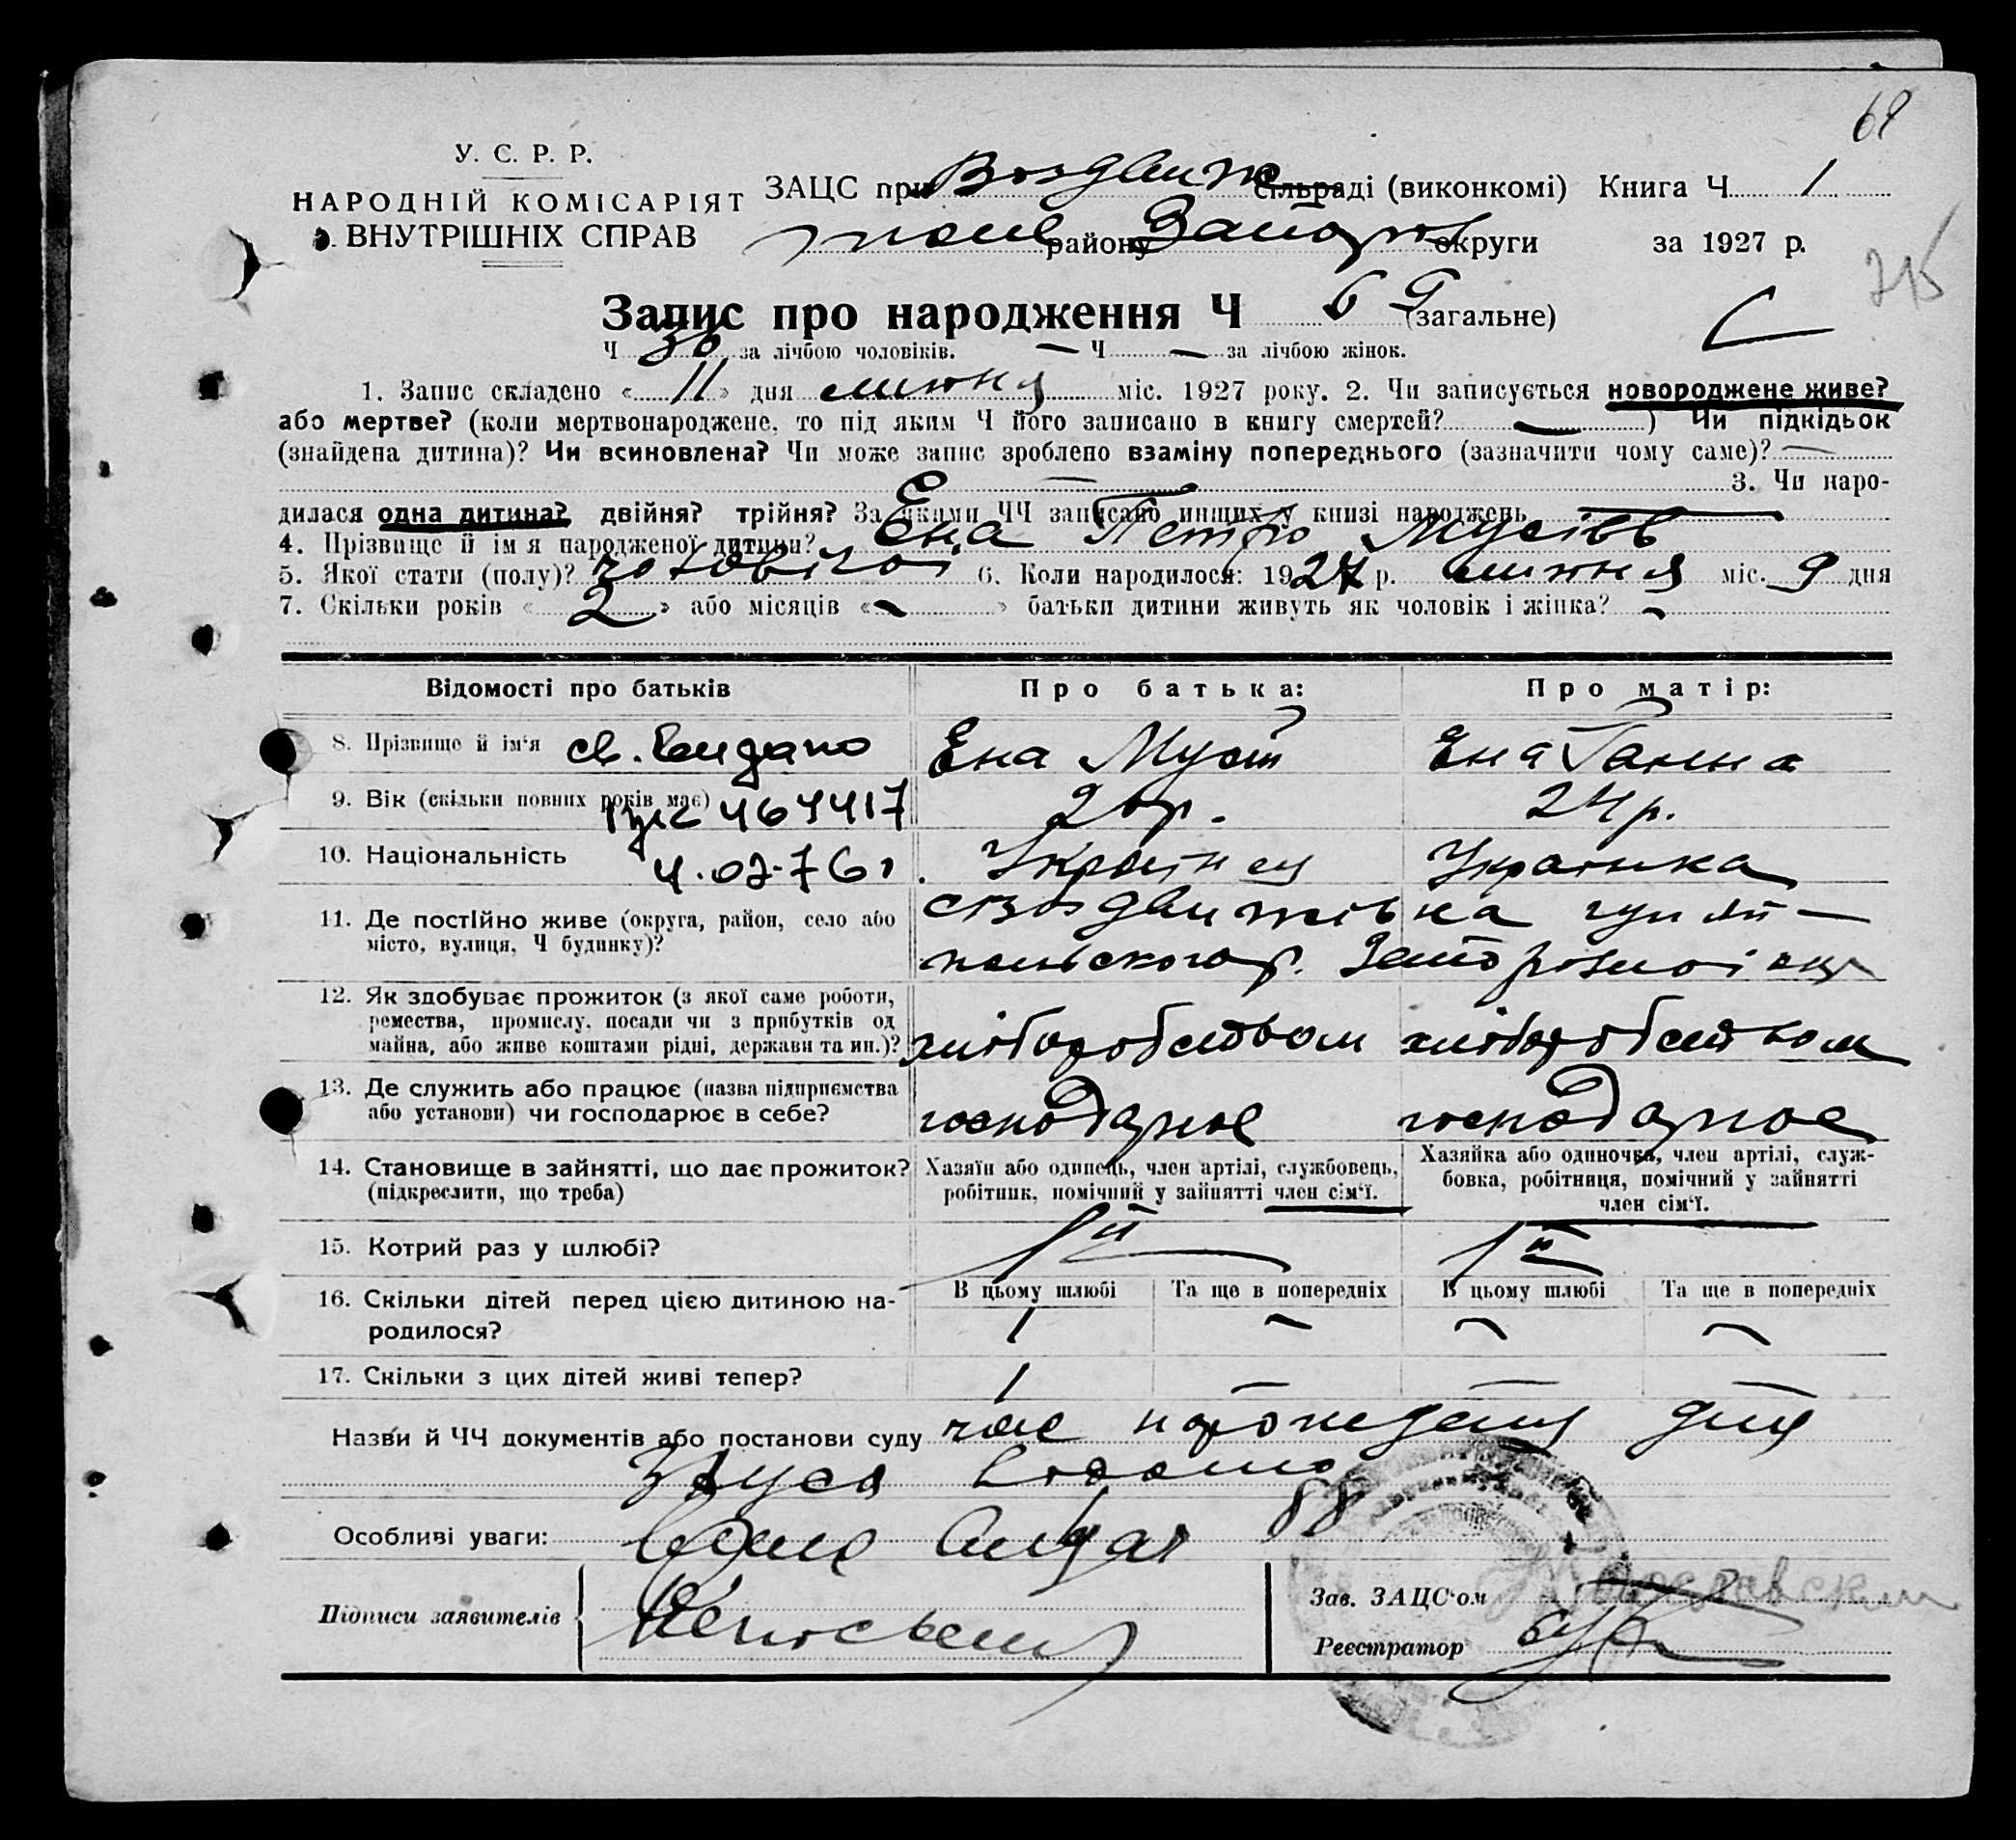 69
У. С. Р. Р.
НАРОДНІЙ КОМІСАРІЯТ
ВНУТРІШНІХ СПРАВ
ЗАЦС при Воздвиж сільраді (виконкомі) Книга Ч. 1
району Запоріз округи за 1927 р.
Запис про народження Ч 69 (загальне)
Ч 36 за лічбою чоловіків. — Ч — за лічбою жінок.
1. Запис складено « 11 » дня липня міс. 1927 року. 2. Чи записується новороджене живе?
або мертве? (коли мертвонароджене, то під яким Ч його записано в книгу смертей? — ) Чи підкідьок
(знайдена дитина)? Чи всиновлена? Чи може запис зроблено взаміну попереднього (зазначити чому саме)? —
— 3. Чи наро-
дилася одна дитина? двійня? трійня? За якими ЧЧ записано инших у книзі народжень —
4. Прізвище й ім'я народженої дитини? Єна Петро Мусієв
5. Якої стати (полу)? чоловічої 6. Коли народилося: 1927 р. липня міс. 9 дня
7. Скільки років « 2 » або місяців « - » батьки дитини живуть як чоловік і жінка? -
Відомості про батьків Про батька: Про матір:
8. Прізвище й ім'я св. Видано Єна Мусій Єна Ганна
9. Вік (скільки повних років має) 464417 20р. 24р.
4.02.76г.
10. Національність Українец Українка
11. Де постійно живе (округа, район, село або місто, вулиця, Ч будинку)? с Воздвижівка гуляй-
польского р. Запорізької окр
12. Як здобуває прожиток (з якої саме роботи, ремества, промислу, посади чи з прибутків од майна, або живе коштами рідні, держави та ин.)? хліборобством хліборобством
13. Де служить або працює (назва підприємства або установи) чи господарює в себе? господарює господарює
14. Становище в зайнятті, що дає прожиток? (підкреслити, що треба) Хазяїн або одинець, член артілі, службовець, робітник, помічний у зайнятті член сім'ї. Хазяйка або одиночка, член артілі, служ-бовка, робітниця, помічний у зайнятті член сім'ї.
15. Котрий раз у шлюбі? 1й 1й
В цьому шлюбі Та ще в попередніх В цьому шлюбі Та ще в попередніх
16. Скільки дітей перед цією дитиною на-родилося? 1 - - -
17. Скільки з цих дітей живі тепер? 1 - - -
Назви й ЧЧ документів або постанови суду
Особливі уваги:
Підписи заявителів
Зав. ЗАЦС'ом
Реєстратор